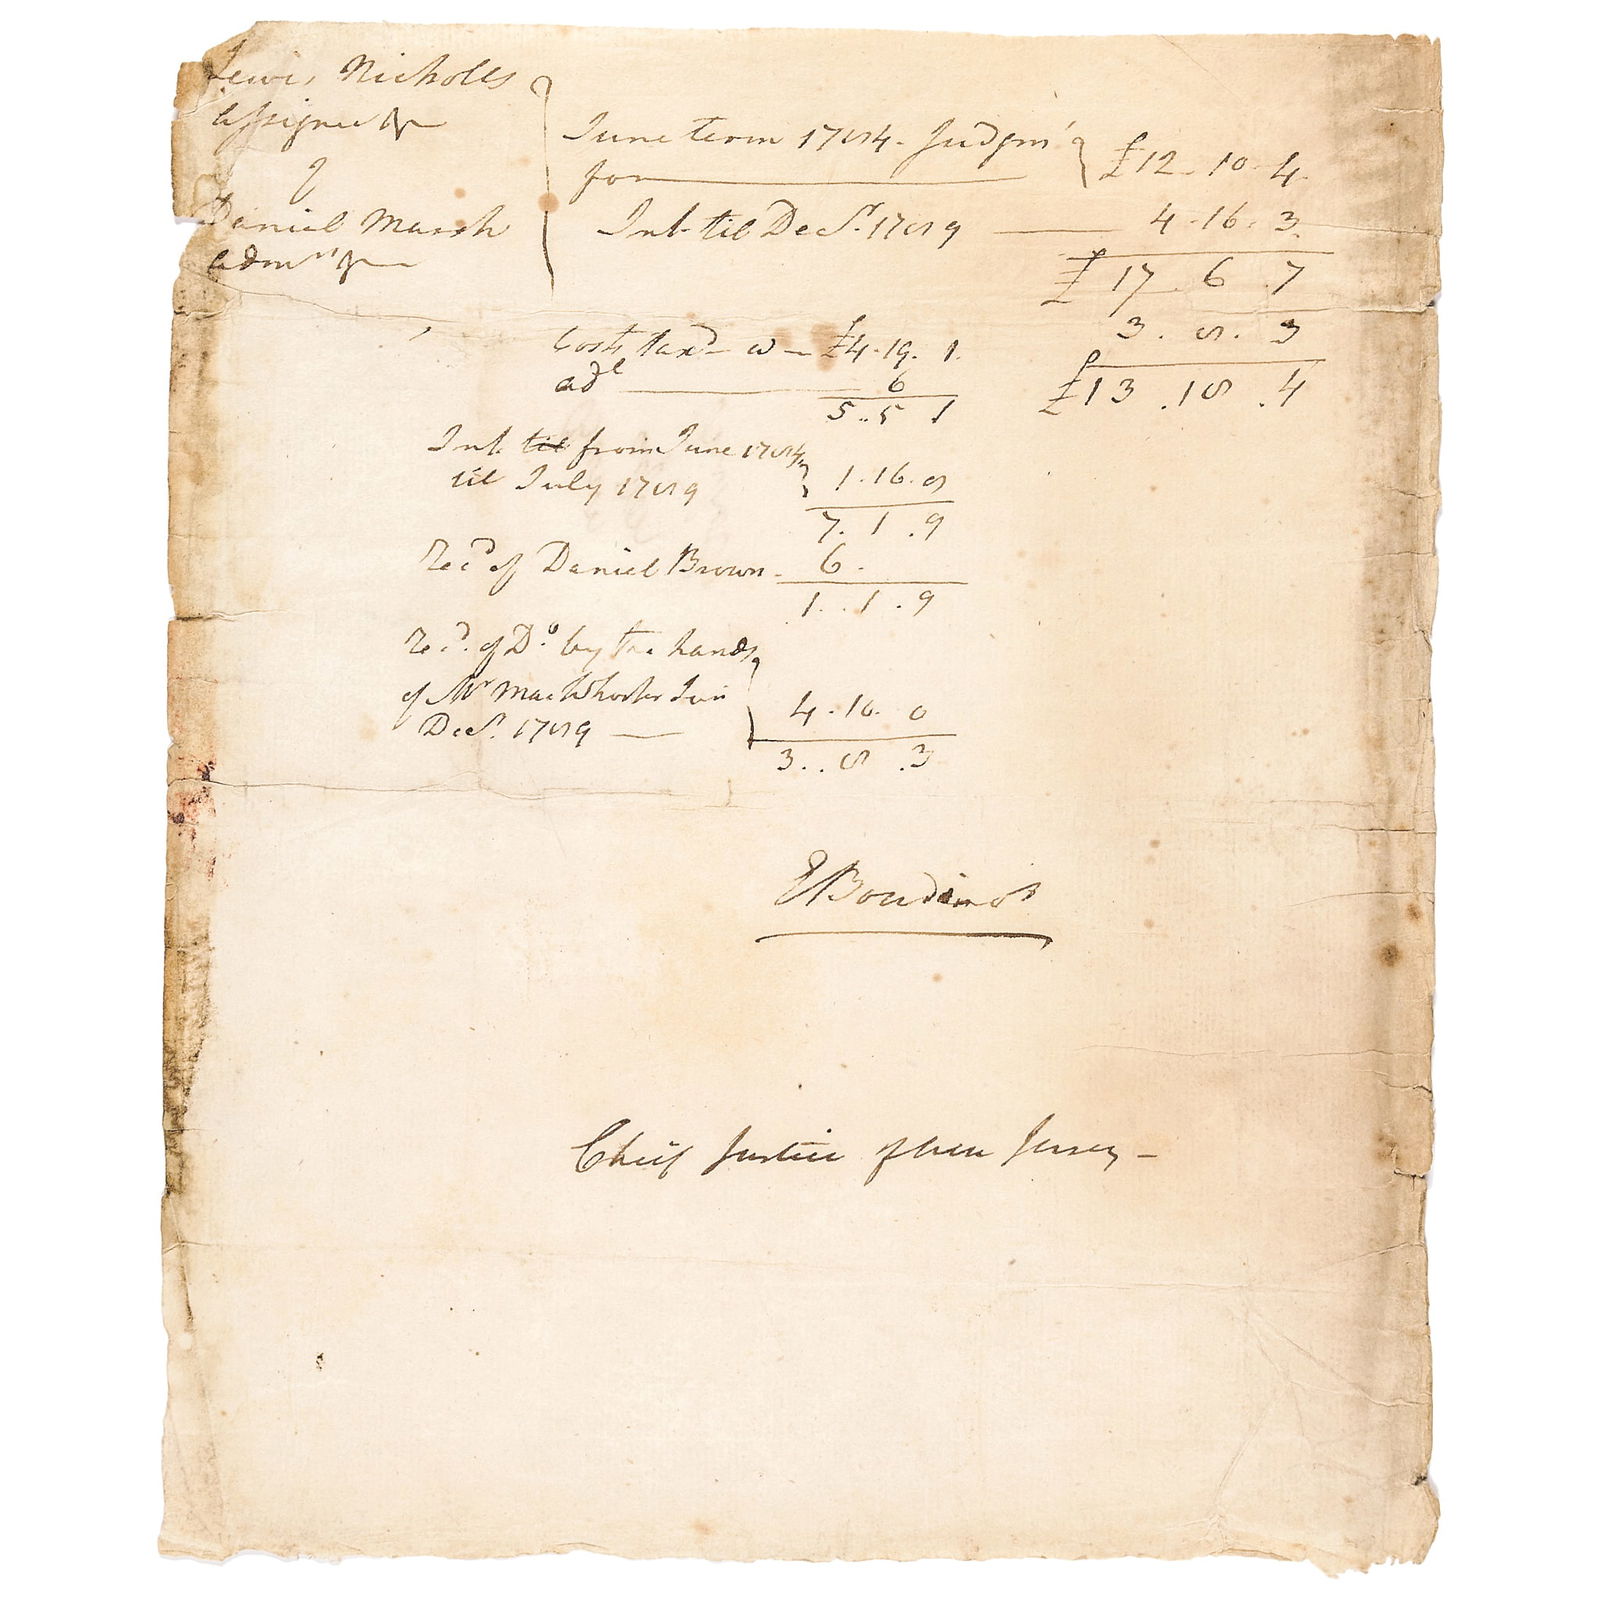 Lewis Nicholls
Assignee &c
v
Daniel Marsh
Admr &c
June Term 1784. Judgmt
for £12. 10. 4.
Int. til Decr. 1789 4. 16. 3.
£17. 6. 7
3. 8. 3
£13. 18. 4
Costs taxd £4. 19. 1.
6
5.. 5 1
Int. til from June 1784,
til July 1789 1. 16. 8
7. 1. 9
Recd of Daniel Brown. 6.
1. . 1. 9
Recd. of Do. by the hands
of Mr MackWhorter Jun
Decr. 1789 4. 10. 0
3. . 8 .3
E Boudinot
Chief Justice of New Jersey –